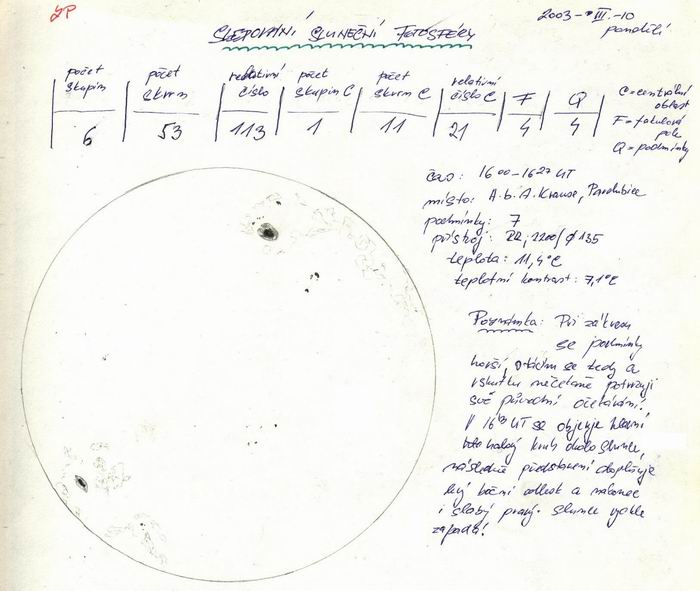 JP
SLEDOVÁNÍ SLUNEČNÍ FOTOSFÉRY
2003-III.-10
pondělí
počet skupin
počet skvrn
relativní číslo
počet skupin C
počet skvrn C
relativní číslo C
F
Q
6
53
113
1
11
21
4
4
C=centrální
oblast
F=fakulová
pole
Q=podmínky
čas: 16 00-16 27 UT
místo: A.b.A.Krause, Pardubice
podmínky: 7
přístroj: 2200/ø135
teplota: 11,4°C
teplotní kontrast: 7,1°C
Poznámka: Při zákresu
se podmínky
horší, se tedy a
vskutku nečekaně potvrzují
své původní očekávání!
V UT se objevuje
halový kruh okolo Slunce,
následné představení doplňuje
levý boční odlesk a nakonec
i slabý pravý. Slunce
zapadá!